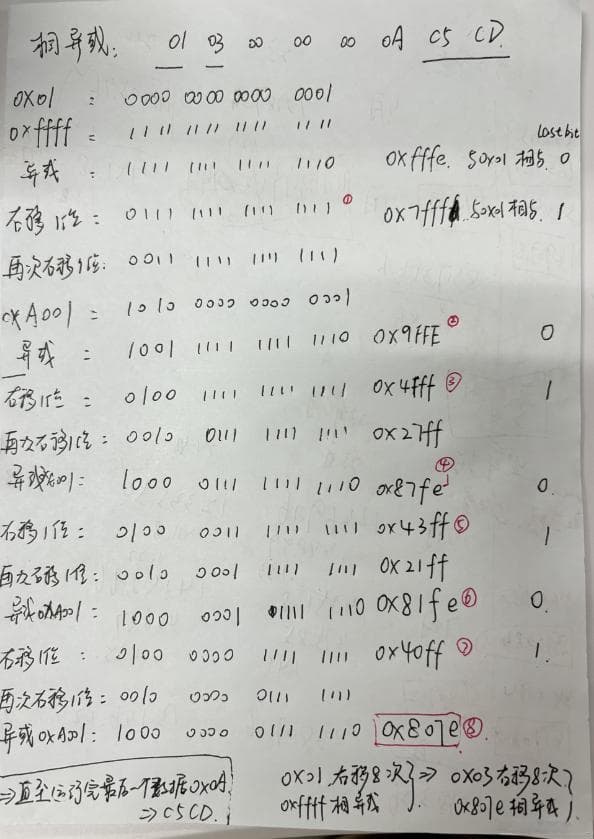 相异或: 01 03 00 00 00 0A C5 CD.
0X01 : 0000 0000 0000 0001
0xffff = 1111 1111 1111 1111
last bit
异或 : 1111 1111 1111 1110 0xfffe. 与0x01相与. 0
右移1位: 0111 1111 1111 1111 ① 0x7fff 与0x01相与. 1
再次右移1位: 0011 1111 1111 1111
0xA001 = 1010 0000 0000 0001
异或 = 1001 1111 1111 1110 0x9FFE ② 0
右移1位 = 0100 1111 1111 1111 0x4fff ③ 1
再次右移1位: 0010 0111 1111 1111 0x27ff
异或A001: 1000 0111 1111 1110 0x87fe ④ 0.
右移1位: 0100 0011 1111 1111 0x43ff ⑤ 1
再次右移1位: 0010 0001 1111 1111 0x21ff
异或0xA001: 1000 0001 1111 1110 0x81fe ⑥ 0.
右移1位: 0100 0000 1111 1111 0x40ff ⑦ 1.
再次右移1位: 0010 0000 0111 1111
异或0xA001: 1000 0000 0111 1110 0x807e ⑧
⇒直至运算完最后一个数据0x0A.
⇒C5CD.
0x01右移8次 } ⇒ 0x03右移8次 }
0xffff相异或 0x807e相异或